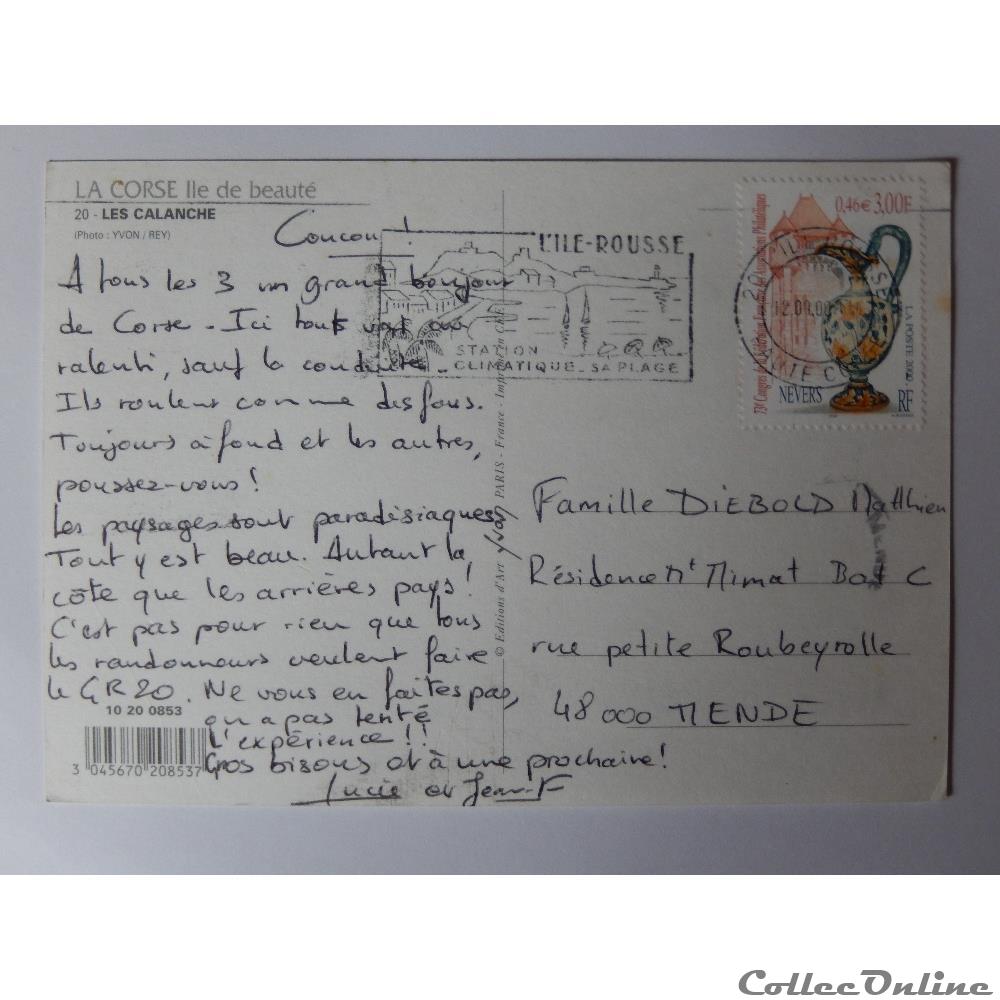 LA CORSE Ile de beauté
20 - LES CALANCHE
(Photo : YVON / REY)
Coucou !
A tous les 3 un grand bonjour
de Corse - Ici tout va au
ralenti, sauf la conduite.
Ils roulent comme des fous.
Toujours à fond et les autres,
poussez-vous !
Les paysages sont paradisiaques
Tout y est beau. Autant la
côte que les arrières pays !
C'est pas pour rien que tous
les randonneurs veulent faire
le GR20. Ne vous en faites pas,
on a pas tenté
l'expérience !!
Gros bisous et à une prochaine !
Lucie et Jean-F
10 20 0853
3 045670 208537
© Editions d'Art Yvon PARIS - France - Imprimé en C.E.E.
L'ILE-ROUSSE
STATION
CLIMATIQUE - SA PLAGE
0.46€ 3,00F
73e Congrès de la Fédération Française des Associations Philatéliques
NEVERS
RF
LA POSTE 2000
Famille DIEBOLD Matthieu
Résidence Mt Mimat Bat C
rue petite Roubeyrolle
48000 MENDE
CollecOnline